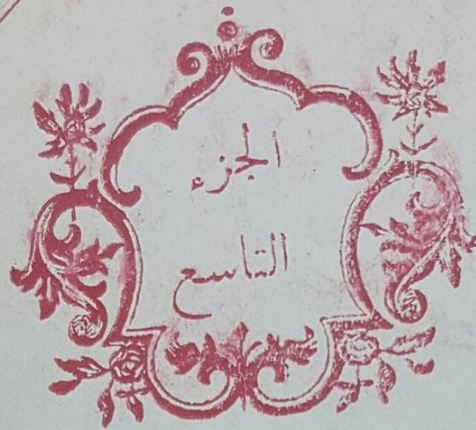 الجزء
التاسع